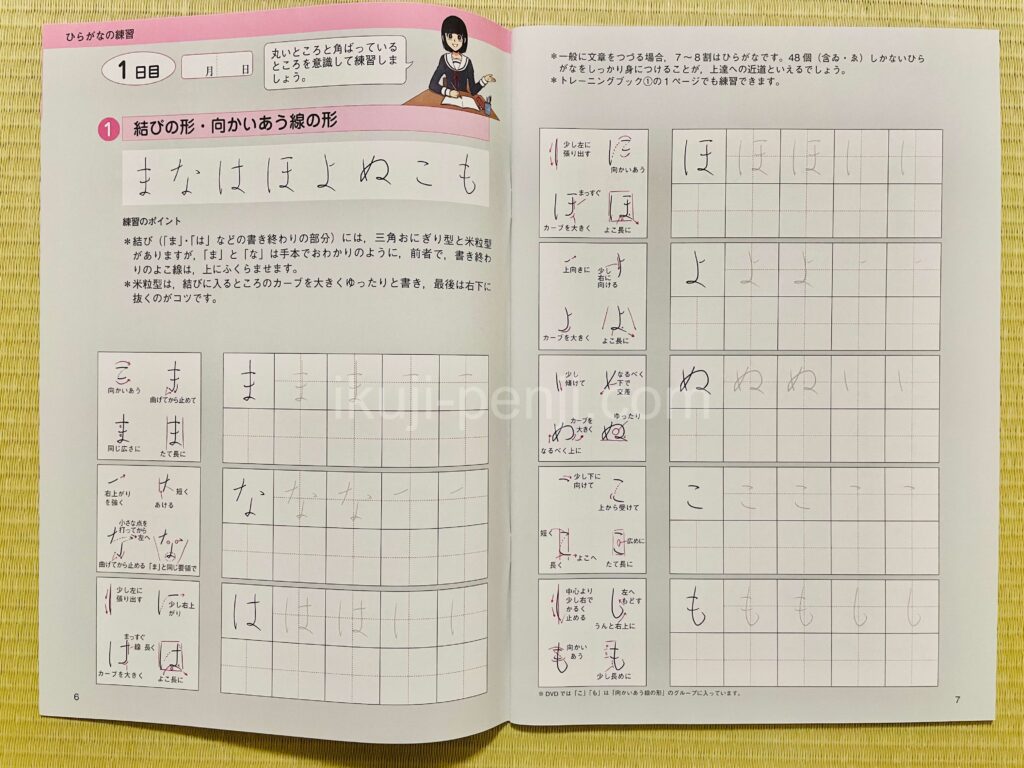 ひらがなの練習
1日目
月 日
丸いところと角ばっている
ところを意識して練習しま
しょう。
1 結びの形・向かいあう線の形
まなはほよぬこも
練習のポイント
＊結び（「ま」・「は」などの書き終わりの部分）には，三角おにぎり型と米粒型
がありますが，「ま」と「な」は手本でおわかりのように，前者で，書き終わ
りのよこ線は，上にふくらませます。
＊米粒型は，結びに入るところのカーブを大きくゆったりと書き，最後は右下に
抜くのがコツです。
向かいあう
曲げてから止めて
同じ広さに
たて長に
ま ま ま
右上がり
を強く
短く
あける
小さな点を
打ってから
左へ
曲げてから止める
「ま」と同じ要領で
な な な
少し左に
張り出す
少し右上
がり
まっすぐ
線 長く
カーブを大きく
よこ長に
は は は
6
＊一般に文章をつづる場合，7〜8割はひらがなです。48個（含ゐ・ゑ）しかないひら
がなをしっかり身につけることが，上達への近道といえるでしょう。
＊トレーニングブック①の1ページでも練習できます。
少し左に
張り出す
向かいあう
まっすぐ
カーブを大きく
よこ長に
ほ ほ ほ
上向きに
少し
右に
向ける
カーブを大きく
よこ長に
よ よ よ
少し
傾けて
なるべく
下で
交差
カーブを
大きく
ゆったり
なるべく上に
ぬ ぬ ぬ
少し下に
向けて
上から受けて
短く
長く
よこへ
広めに
たて長に
こ こ こ
中心より
少し右で
かるく
止める
左へ
もどす
うんと右上に
向かい
あう
少し長めに
も も も
※DVDでは「こ」「も」は「向かいあう線の形」のグループに入っています。
7
ikuji-penji.com